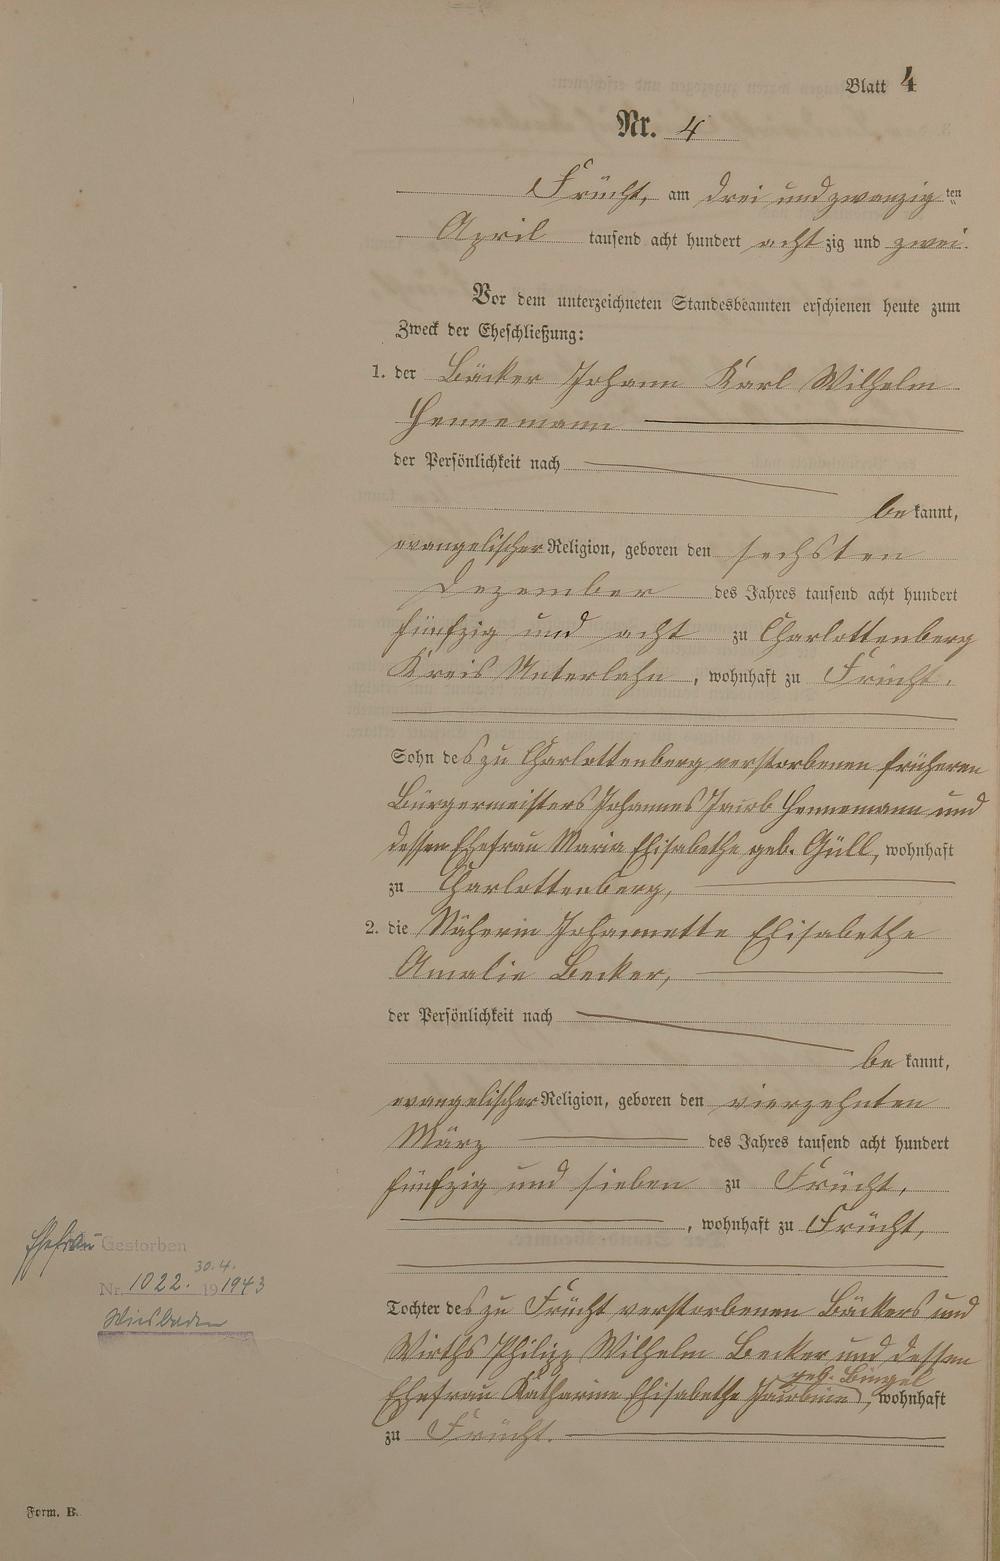 Blatt 4
Nr. 4
Frücht, am drei und zwanzig ten
April tausend acht hundert acht zig und zwei.
Vor dem unterzeichneten Standesbeamten erschienen heute zum
Zweck der Eheschließung:
1. der Bäcker Johann Karl Wilhelm
Hennemann
der Persönlichkeit nach
be kannt,
evangelischer Religion, geboren den sechsten
Dezember des Jahres tausend acht hundert
fünfzig und acht zu Charlottenberg
Kreis Unterlahn, wohnhaft zu Frücht.
Sohn des zu Charlottenberg verstorbenen früheren
Bürgermeisters Johannes Jacob Hennemann und
dessen Ehefrau Maria Elisabethe geb. Güll, wohnhaft
zu Charlottenberg,
2. die Näherin Johannette Elisabethe
Amalie Becker,
der Persönlichkeit nach
be kannt,
evangelischer Religion, geboren den vierzehnten
März des Jahres tausend acht hundert
fünfzig und sieben zu Frücht,
, wohnhaft zu Frücht,
Ehefrau Gestorben
30.4.
Nr. 1022. 19 1943
Wiesbaden
Tochter des zu Frücht verstorbenen Bäckers und
Wirths Philipp Wilhelm Becker und dessen
geb. Bingel
Ehefrau Katharine Elisabethe Jacobine, wohnhaft
zu Frücht.
Form. B.